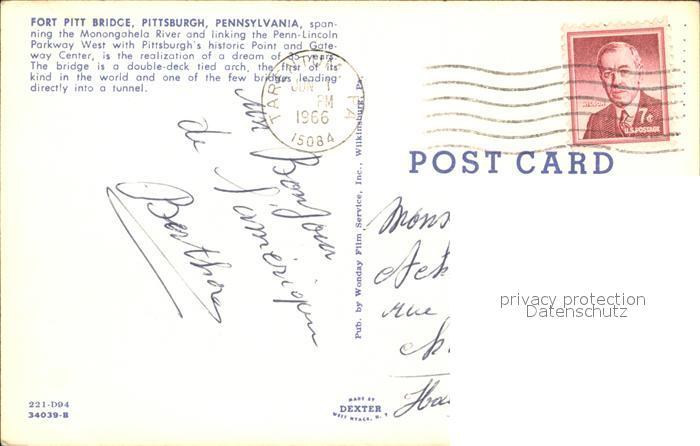 FORT PITT BRIDGE, PITTSBURGH, PENNSYLVANIA, span-
ning the Monongahela River and linking the Penn-Lincoln
Parkway West with Pittsburgh's historic Point and Gate-
way Center, is the realization of a dream of 35 years.
The bridge is a double-deck tied arch, the first of its
kind in the world and one of the few bridges leading
directly into a tunnel.
TARENTUM PA
JUN 1
PM
1966
15084
7¢
U.S. POSTAGE
POST CARD
Bonjour
de l'amérique
Pub. by Wonday Film Service, Inc., Wilkinsburg, Pa.
Mons
rue
privacy protection
Datenschutz
221-D94
34039-B
MADE BY
DEXTER
WEST NYACK, N. Y.